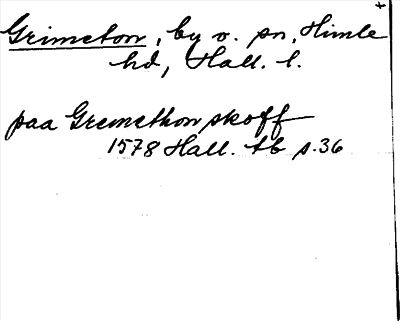 Grimeton, by o. sn, Himle
hd, Hall. l.
paa Gremethon skoff
1578 Hall. tb s. 36